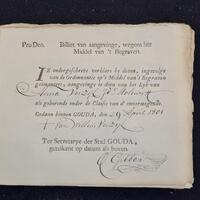 Pro Deo. Billet van aangevinge, wegens het
Middel van 't Begraven.
IK ondergeschreve verklare by dezen, ingevolge
van de Ordonnantie op 't Middel van 't Begraven
geëmaneert, aangevinge te doen van het Lyk van
als gehoorende onder de Classis van d' onvermogende.
Gedaan binnen GOUDA, den 29 April 1801
van Willem
Ter Secretarye der Stad GOUDA,
getekent op datum als boven.